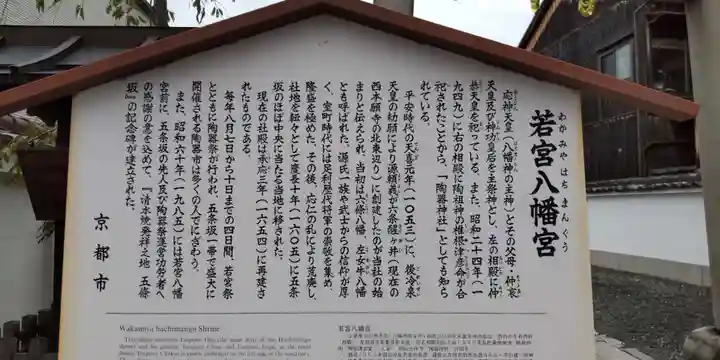 若宮八幡宮
わかみやはちまんぐう
応神天皇（八幡神の主神）とその父母・仲哀
天皇及び神功皇后を主祭神とし、左の相殿に仲
恭天皇を祀っている。また、昭和二十四年（一
九四九）に右の相殿に陶祖神の椎根津彦命が合
祀されたことから、「陶器神社」としても知ら
れている。
平安時代の天喜元年（一〇五三）に、後冷泉
天皇の勅願により源頼義が六条醒ケ井（現在の
西本願寺の北東辺り）に創建したのが当社の始
まりと伝えられ、当初は六條八幡、左女牛八幡
とも呼ばれた。源氏一族や武士からの信仰が厚
く、室町時代には足利歴代将軍の崇敬を集め、
隆盛を極めた。その後、応仁の乱により荒廃し、
社地を転々として慶長十年（一六〇五）に五条
坂のほぼ中央に当たる当地に移された。
現在の社殿は承応三年（一六五四）に再建さ
れたものである。
毎年八月七日から十日までの四日間、若宮祭
とともに陶器祭が行われ、五条坂一帯で盛大に
開催される陶器市は多くの人でにぎわう。
また、昭和六十年（一九八五）には若宮八幡
宮前に、五条坂の先人及び陶器祭運営功労者へ
の感謝の意を込めて、『清水焼発祥之地 五條
坂』の記念碑が建立された。
京都市
Wakamiya Hachimangu Shrine
若宫八幡宫